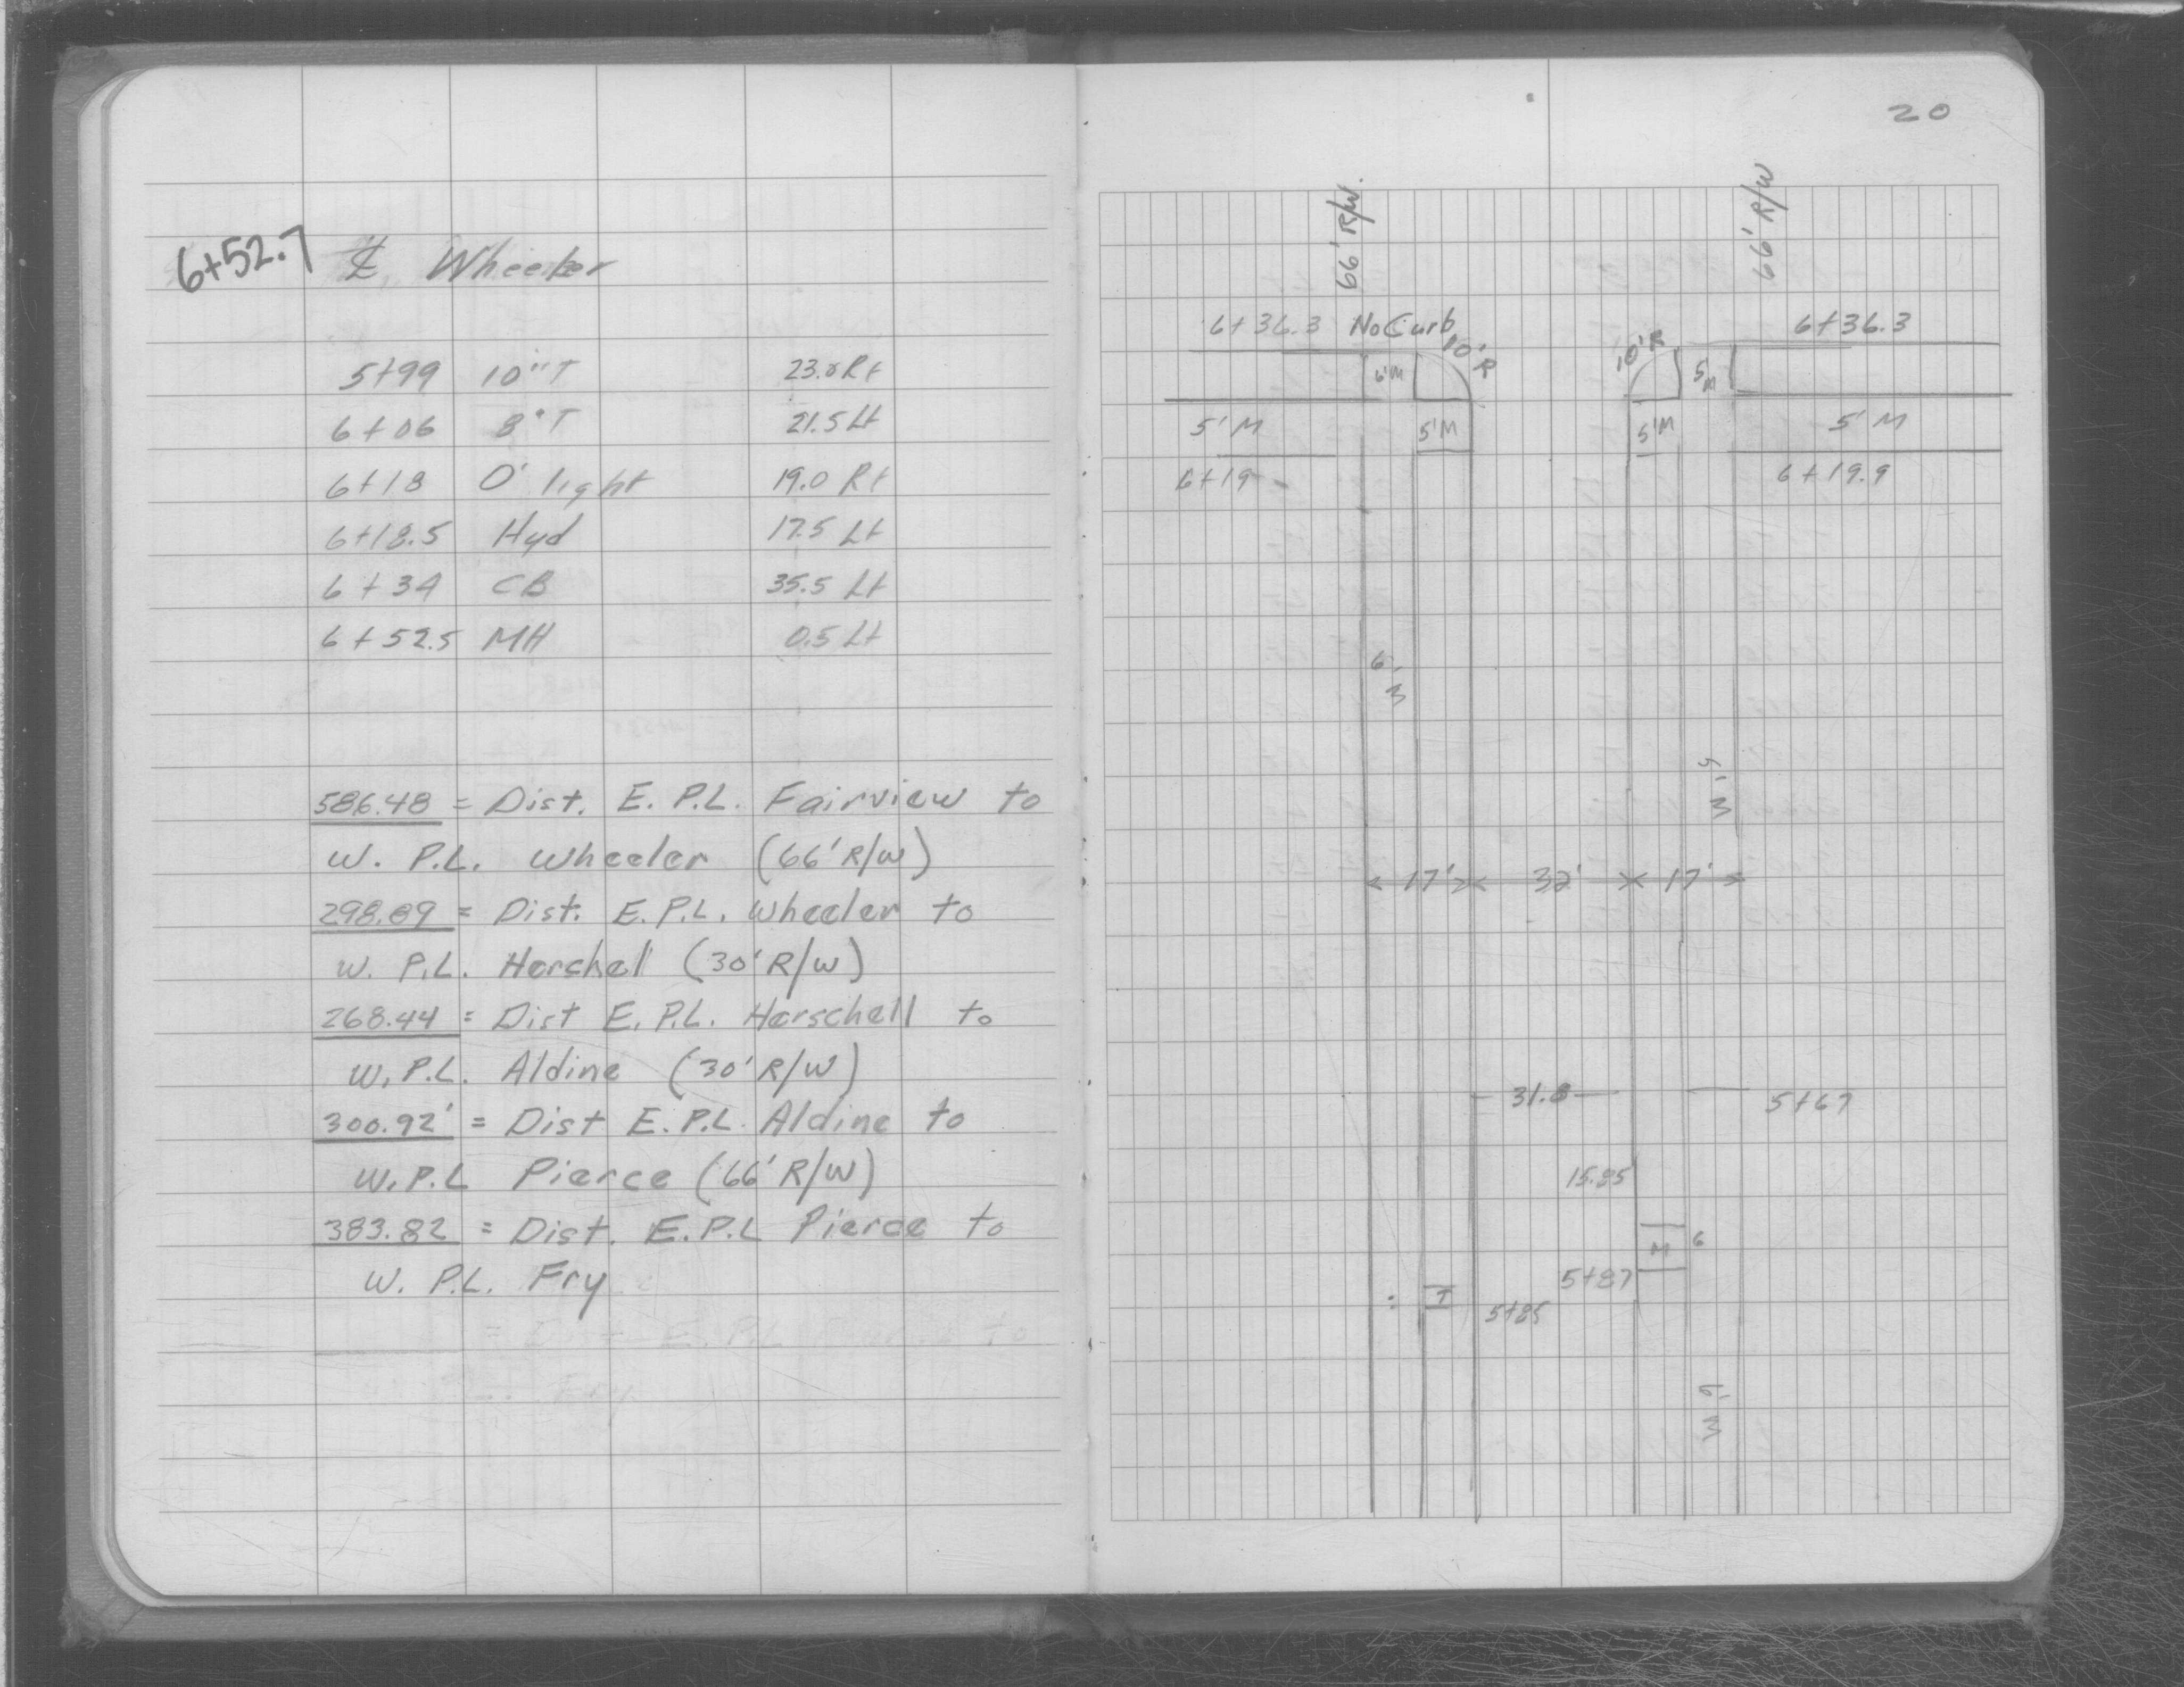 6+52.7 ℄ Wheeler
5+99 10"T 23.0 Rt
6+06 8"T 21.5 Lt
6+18 O' light 19.0 Rt
6+18.5 Hyd 17.5 Lt
6+34 CB 35.5 Lt
6+52.5 MH 0.5 Lt
586.48 = Dist. E. P.L. Fairview to
W. P.L. Wheeler (66' R/W)
298.69 = Dist. E.P.L. Wheeler to
W. P.L. Herchel (30' R/W)
268.44 = Dist E. P.L. Herschell to
W. P.L. Aldine (30' R/W)
300.92' = Dist E.P.L. Aldine to
W. P.L Pierce (66' R/W)
383.82 = Dist. E.P.L Pierce to
W. P.L. Fry
20
66' R/W.
66' R/W
6+36.3 No Curb
6+36.3
10' R
10' R
6'M
5'M
5'M
5'M
5'M
5'M
6+19
6+19.9
6' M
6' M
17' 32' 17'
31.8
5+67
15.85
M 6
5+87
I
5+85
6' M